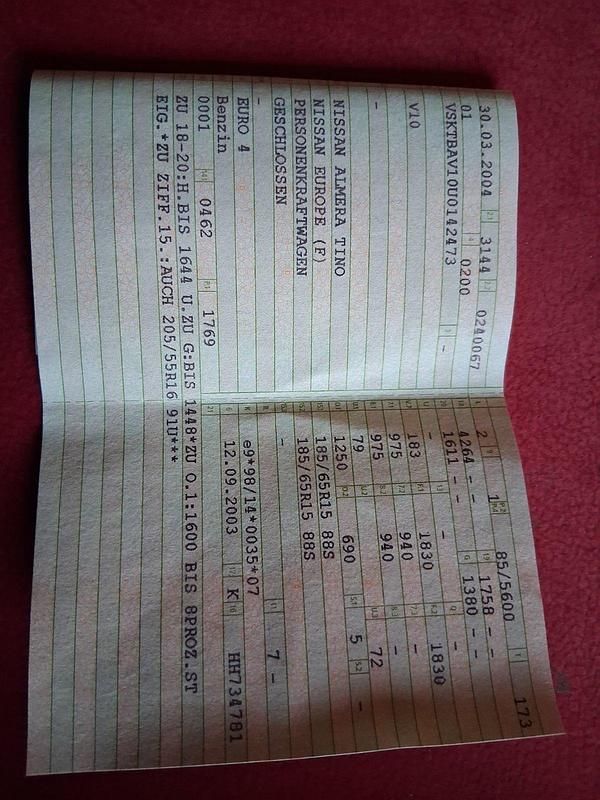 30.03.2004 3144 0240067
01 0200
VSKTBAV10U0142473 -
V10
-
NISSAN ALMERA TINO
NISSAN EUROPE (F)
PERSONENKRAFTWAGEN
GESCHLOSSEN
-
EURO 4
Benzin
0001 0462 1769
ZU 18-20:H.BIS 1644 U.ZU G:BIS 1448*ZU O.1:1600 BIS 8PROZ.ST
EIG.*ZU ZIFF.15.:AUCH 205/55R16 91U***
2 1 85/5600 173
4264 - - 1758 - -
1611 - - 1380 - -
- - -
183 1830 1830
975 940 -
975 940 -
79 72
1250 690 5 -
185/65R15 88S
185/65R15 88S
- 7 -
e9*98/14*0035*07
12.09.2003 K HH734781